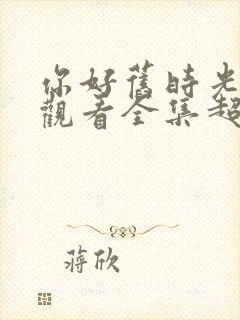 你好舊時光
觀看全集超
蔣欣